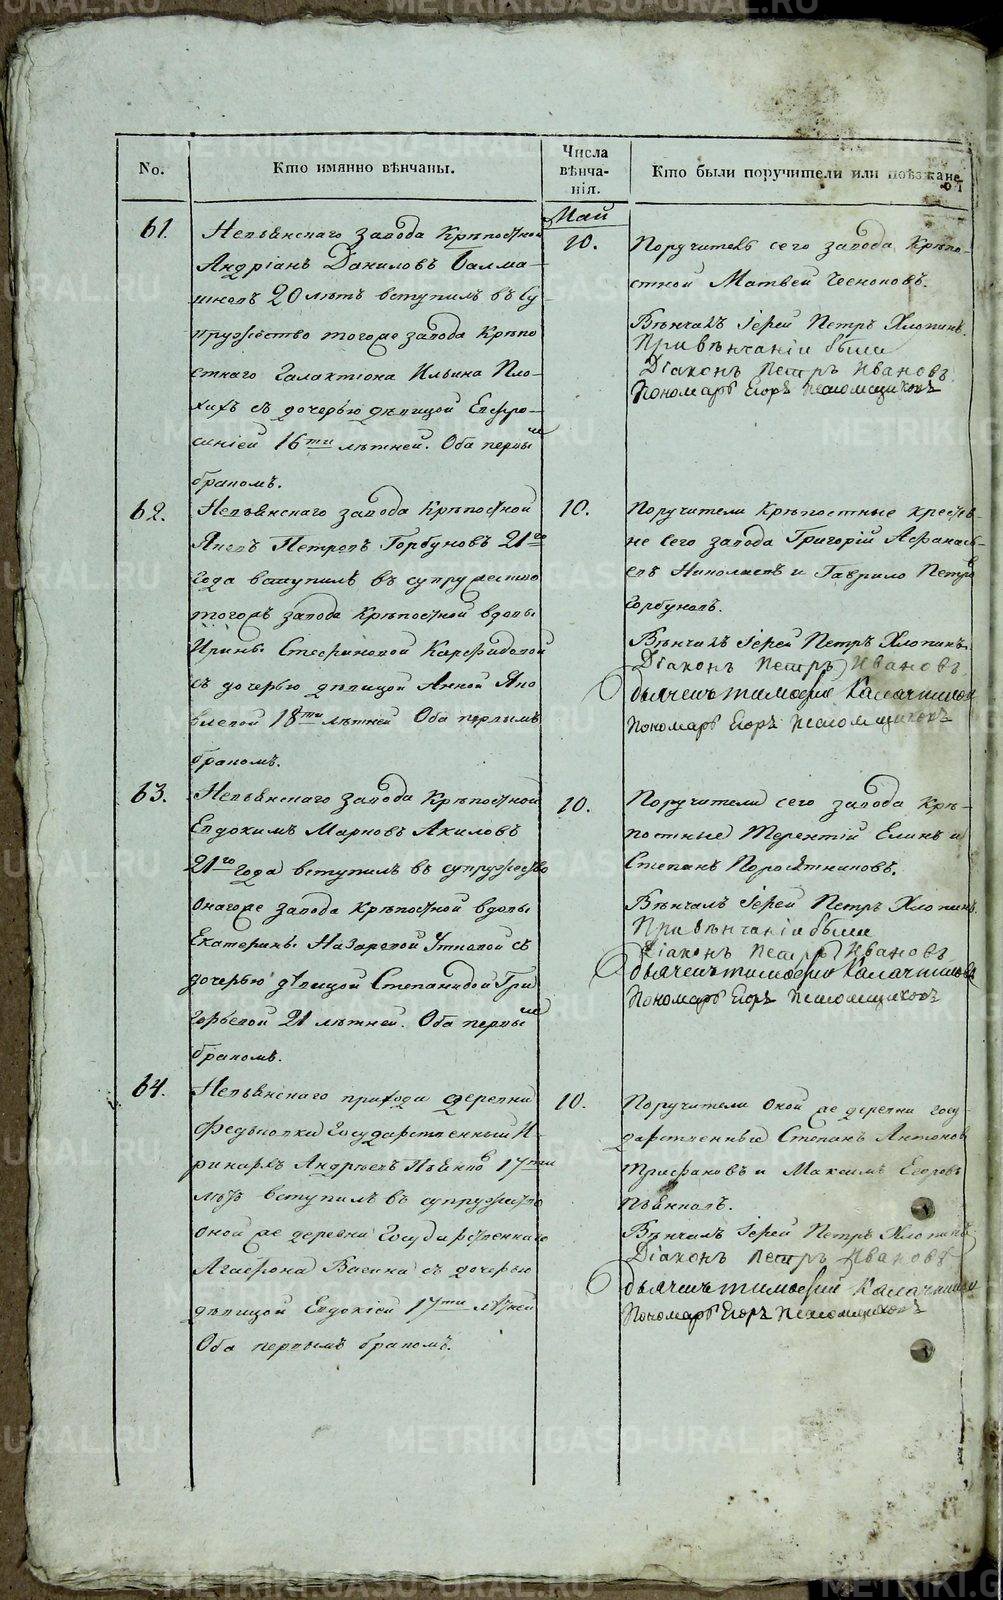 No.
Кто имянно вѣнчаны.
Числа
вѣнча-
нія.
Кто были поручители или поѣзжане
Май
61.
Невьянскаго завода Крѣпостной
Андріанъ Даниловъ Балма-
шневъ 20 лѣтъ вступилъ въ Су-
пружество тогоже завода Крѣпо
стнаго Галактіона Ильина Пло-
хихъ съ дочерью дѣвицой Евфро-
синіей 16ти лѣтней. Оба первы
мъ
бракомъ.
10.
Поручитель сего завода Крѣпо-
стной Матвей Чесноковъ.
Вѣнчалъ Іерей Петръ Хлопинъ.
При вѣнчаніи были
Діаконъ Петръ Ивановъ
Пономарь Егоръ
62.
Невьянскаго завода Крѣпостной
Яковъ Петровъ Горбуновъ 21го
года вступилъ въ супружество
тогожъ завода Крѣпостной вдовы
Ирины Стефановой Карфидовой
съ дочерью дѣвицой Анной Яко
влевой 18ти лѣтней Оба первымъ
бракомъ.
10.
Поручители Крѣпостные крестья-
не Сего завода Григорій Афанась-
евъ Николаевъ и Гаврило Петро
въ
Горбуновъ.
Вѣнчалъ Іерей Петръ Хлопинъ
Діаконъ Петръ Ивановъ
Дьячекъ Тимофей
Пономарь Егоръ
63.
Невьянскаго завода Крѣпостной
Евдокимъ Марковъ Акиловъ
21го года вступилъ въ супружество
онагоже завода Крѣпостной вдовы
Екатерины Назаревой Уткиной съ
дочерью дѣвицой Степанидой Гри
горьевой 21 лѣтней. Оба первы
мъ
бракомъ.
10.
Поручители сего завода Крѣ-
постные Терентій Елинъ и
Степанъ Поросятниковъ.
Вѣнчалъ Іерей Петръ Хлопинъ.
При вѣнчаніи были
Діаконъ Петръ Ивановъ
Дьячекъ Тимофей
Пономарь Егоръ
64.
Невьянскаго прихода деревни
Федьковки Государственный И-
ринархъ Андреевъ Пьянко
въ 17ти
лѣтъ вступилъ въ супружество
оной же деревни Государственнаго
Агафона Васина съ дочерью
дѣвицой Евдокіей 17ти лѣтней
Оба первымъ бракомъ.
10.
Поручители Оной же деревни госу-
дарственные Степанъ Антонов
Трифановъ и Максимъ Егоровъ
Пьянковъ.
Вѣнчалъ Іерей Петръ Хлопинъ
Діаконъ Петръ Ивановъ
Дьячекъ Тимофей
Пономарь Егоръ
METRIKI.GASO-URAL.RU